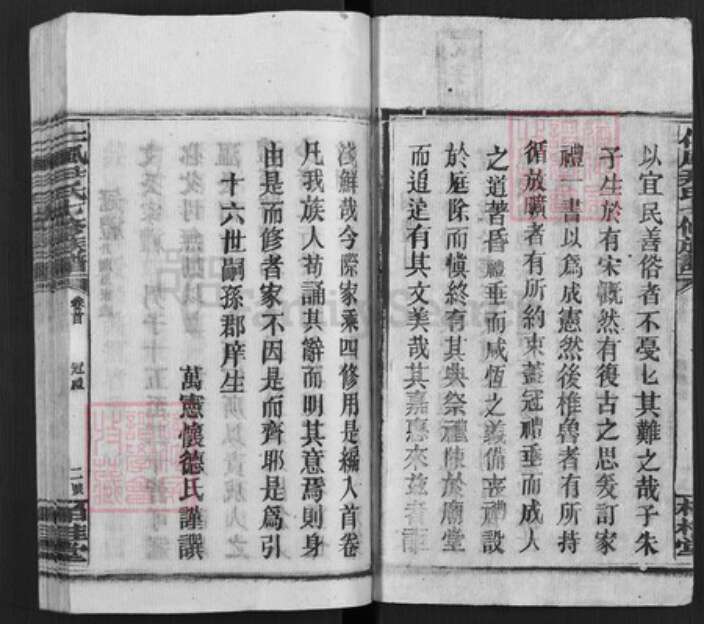 以宜民善俗者不憂乚其難之哉子朱
子生於有宋慨然有復古之思爰訂家
禮一書以爲成憲然後椎魯者有所持
循放曠者有所約束蓋冠禮垂而成人
之道著昏禮垂而咸恆之義備喪禮設
於庭除而愼終有其典祭禮陳於廟堂
而追逺有其文美哉其嘉惠來茲者詎
淺鮮哉今際家乘四修用是編入首卷
凡我族人苟誦其辭而明其意焉則身
由是而修者家不因是而齊耶是爲引
十六世嗣孫郡庠生
萬憲懷德氏謹譔
尹氏七修族譜
卷首
冠禮
二號
桂堂